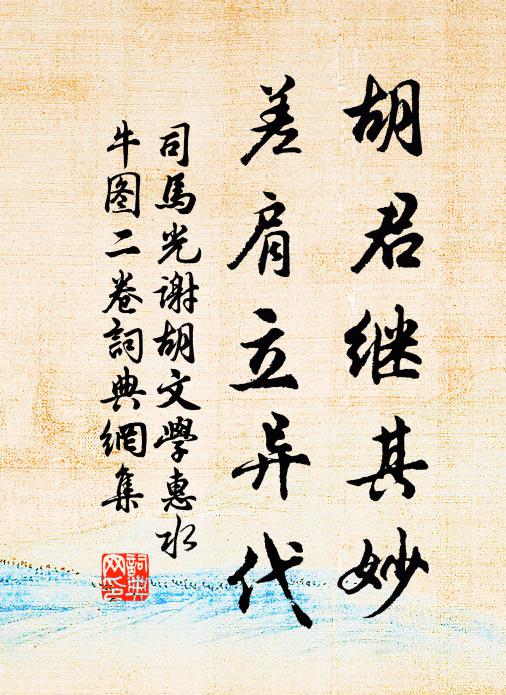 胡君继其妙
差肩立异代
司馬光谢胡文學惠水
牛图二卷詞典網集